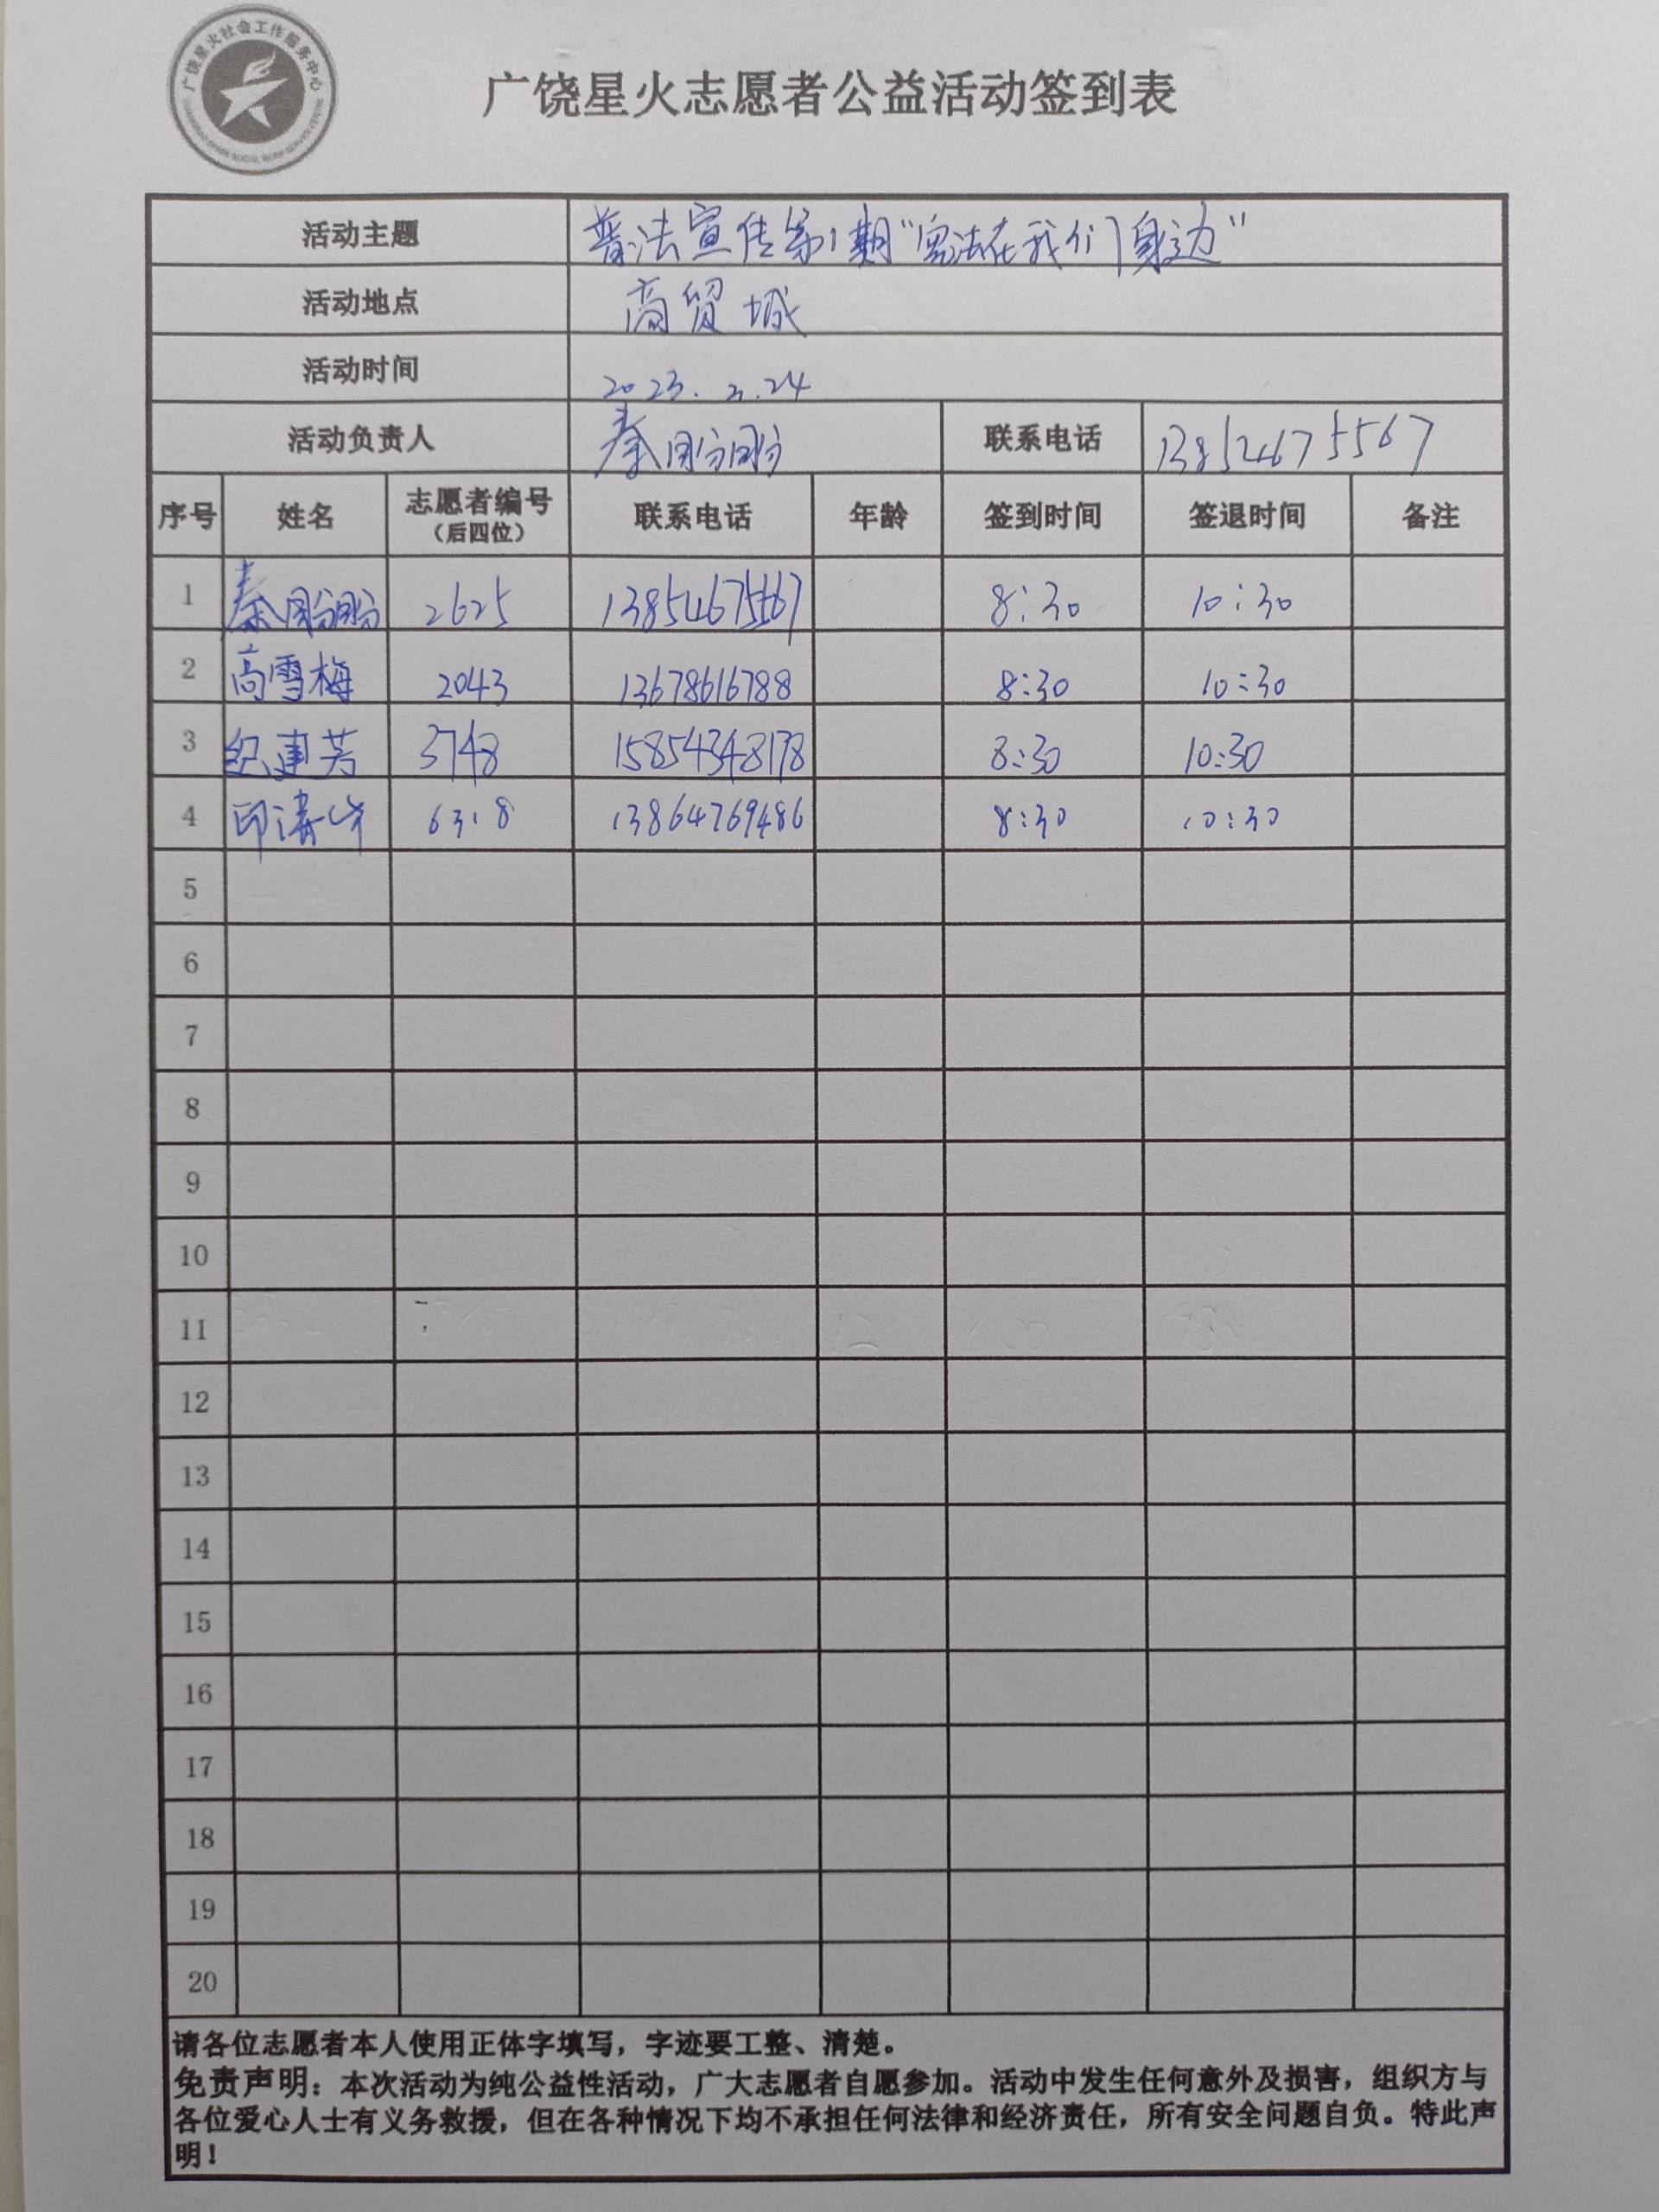 广饶星火社会工作服务中心
广饶星火志愿者公益活动签到表
活动主题 普法宣传第1期“宪法在我们身边”
活动地点 商贸城
活动时间 2023.2.24
活动负责人 秦 联系电话 13854675567
序号 姓名 志愿者编号（后四位） 联系电话 年龄 签到时间 签退时间 备注
1 秦 2625 13854675567 8:30 10:30
2 高雪梅 2043 13678616788 8:30 10:30
3 纪建芳 3748 15854348178 8:30 10:30
4 印涛 6318 13864769486 8:30 10:30
5
6
7
8
9
10
11
12
13
14
15
16
17
18
19
20
请各位志愿者本人使用正体字填写，字迹要工整、清楚。
免责声明：本次活动为纯公益性活动，广大志愿者自愿参加。活动中发生任何意外及损害，组织方与
各位爱心人士有义务救援，但在各种情况下均不承担任何法律和经济责任，所有安全问题自负。特此声
明！